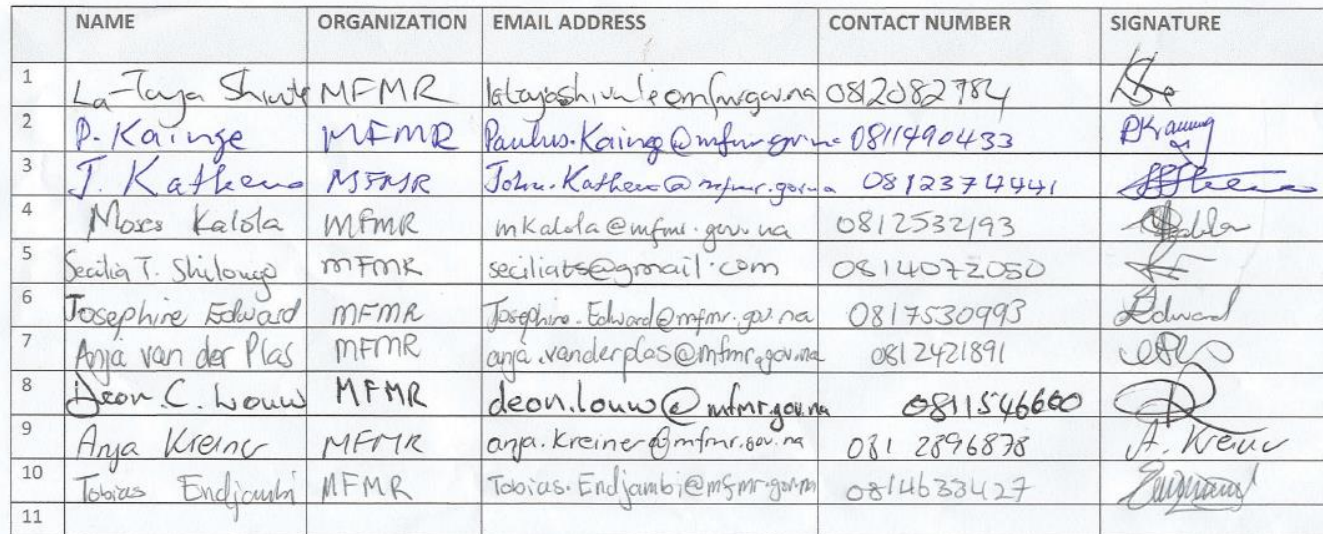 NAME ORGANIZATION EMAIL ADDRESS CONTACT NUMBER SIGNATURE
1 La-Taya Shivute MFMR latayashivute@mfmr.gov.na 0812082784
2 P. Kainge MFMR Paulus.Kainge@mfmr.gov.na 0811490433
3 J. Kathena MFMR John.Kathena@mfmr.gov.na 0812374441
4 Moses Kalola MFMR mkalola@mfmr.gov.na 0812532193
5 Secilia T. Shilongo MFMR seciliats@gmail.com 0814072050
6 Josephine Edward MFMR Josephine.Edward@mfmr.gov.na 0817530993 Edward
7 Anja van der Plas MFMR anja.vanderplas@mfmr.gov.na 0812421891
8 Deon C. Louw MFMR deon.louw@mfmr.gov.na 0811546660
9 Anja Kreiner MFMR anja.kreiner@mfmr.gov.na 081 2896878 A. Kreiner
10 Tobias Endjambi MFMR Tobias.Endjambi@mfmr.gov.na 0814633427
11